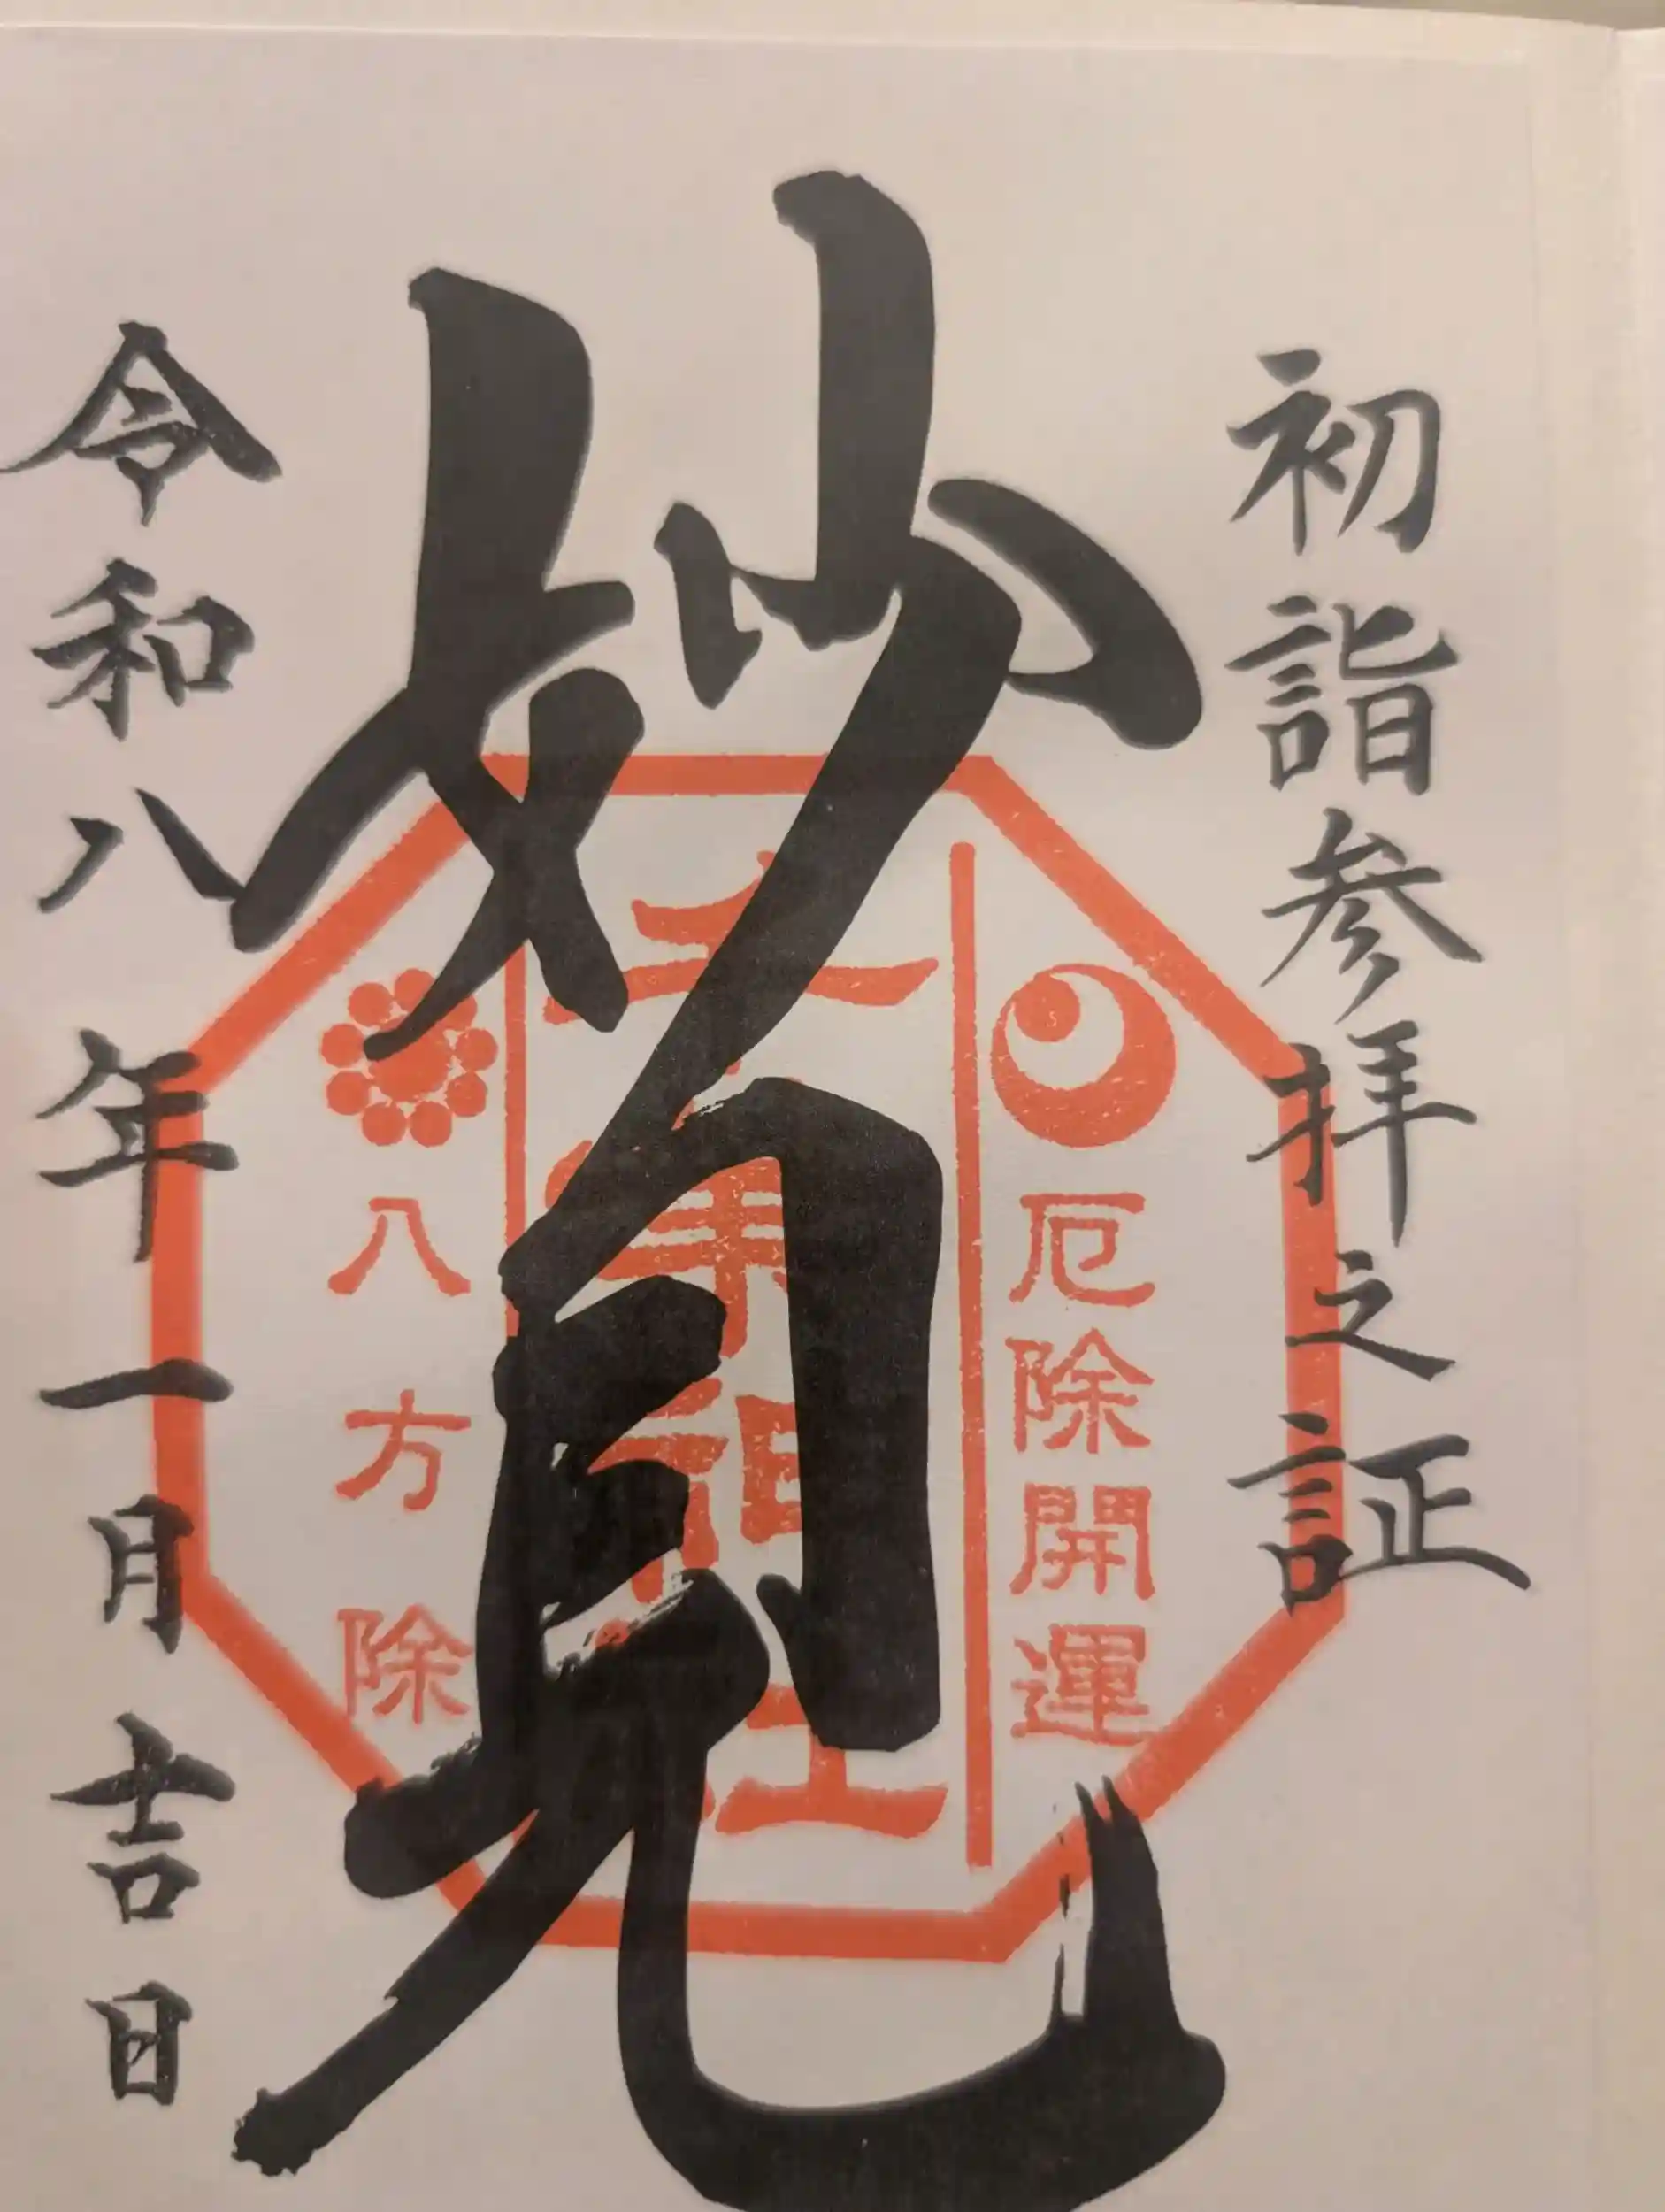 初詣参拝之証
妙見
厄除開運
八方除
令和八年一月吉日